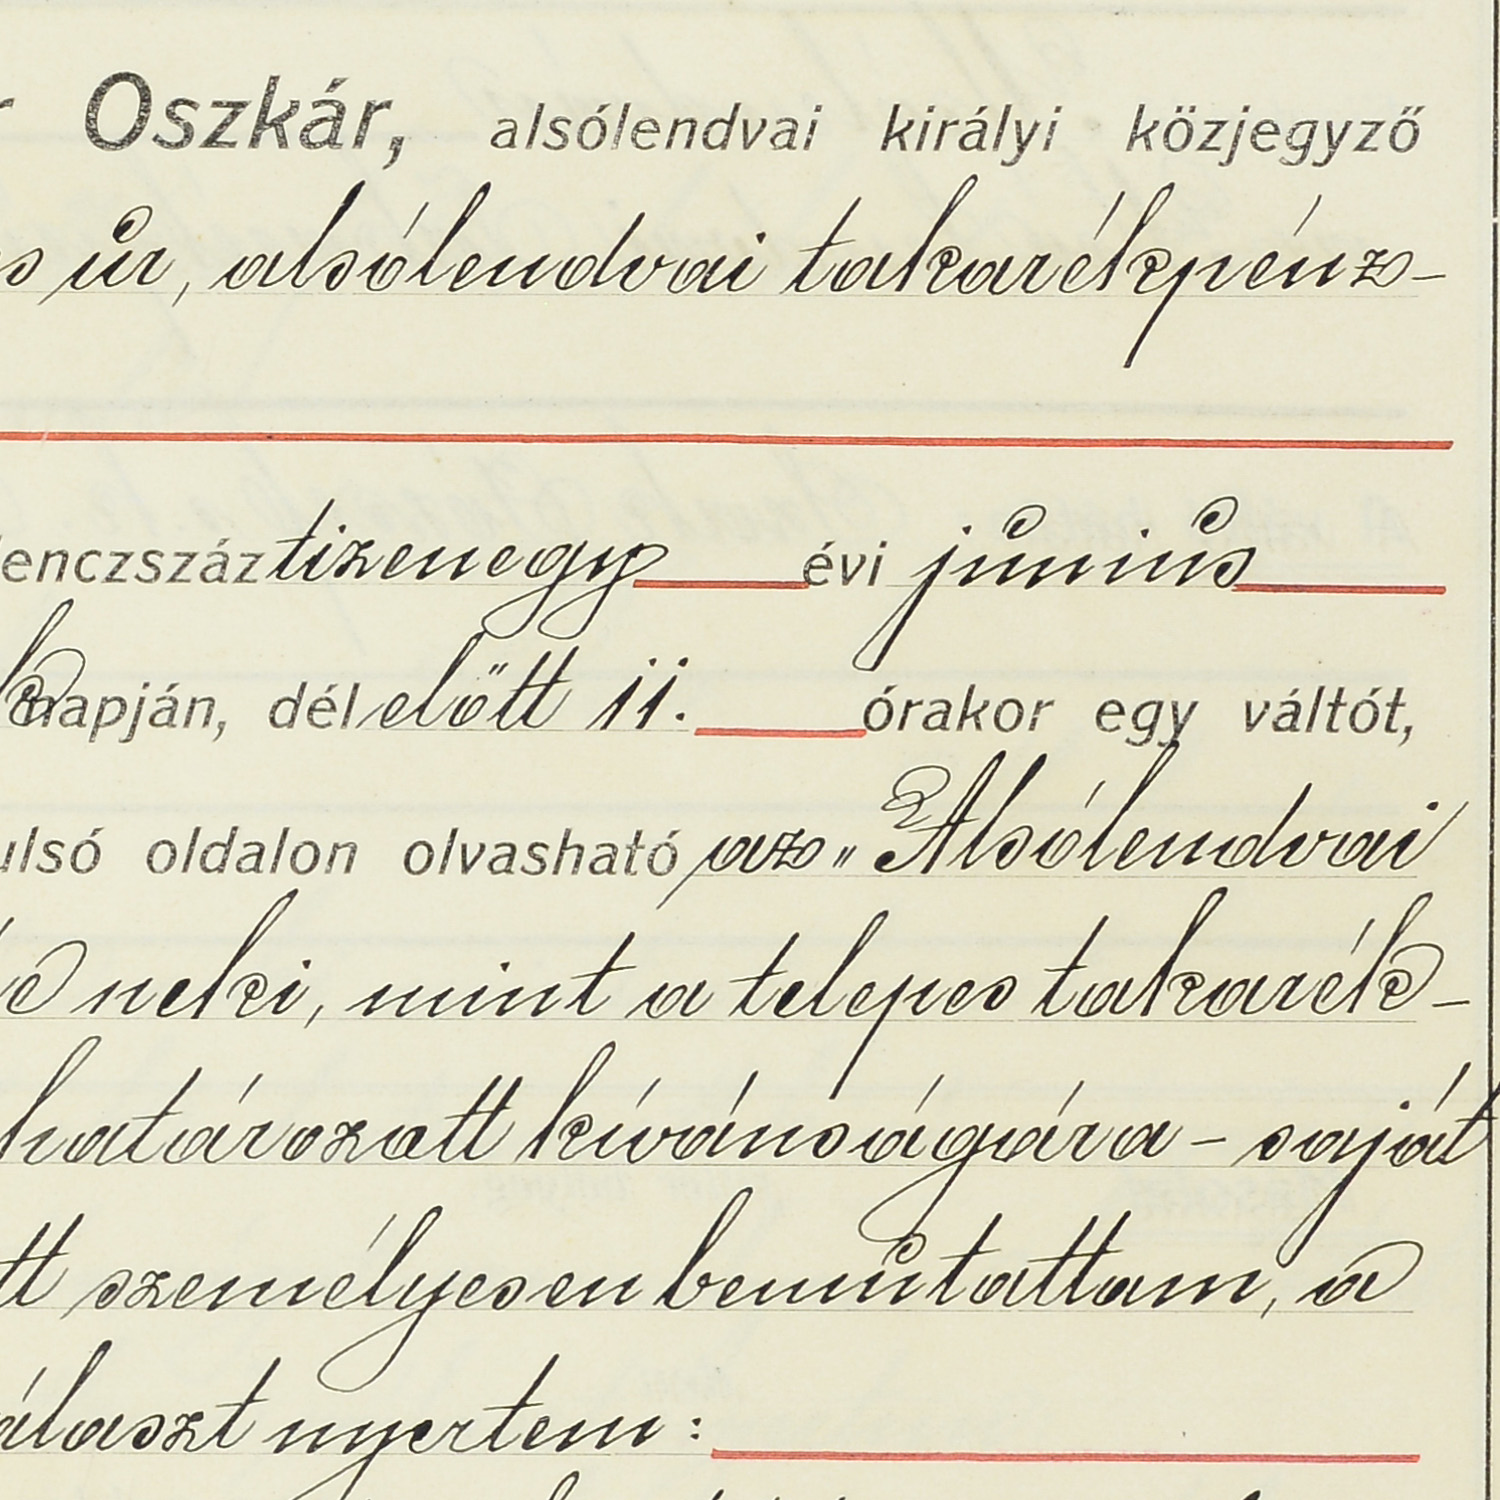 Oszkár, alsólendvai királyi közjegyző
úr, alsólendvai takarékpénz-
lenczszáz tizenegy évi június
napján, dél előtt 11. órakor egy váltót,
ulsó oldalon olvasható az „Alsólendvai
neki, mint a telepes takarék-
határozatt kívánságára - saját
tt személyesen bemutattam, a
álaszt nyertem: